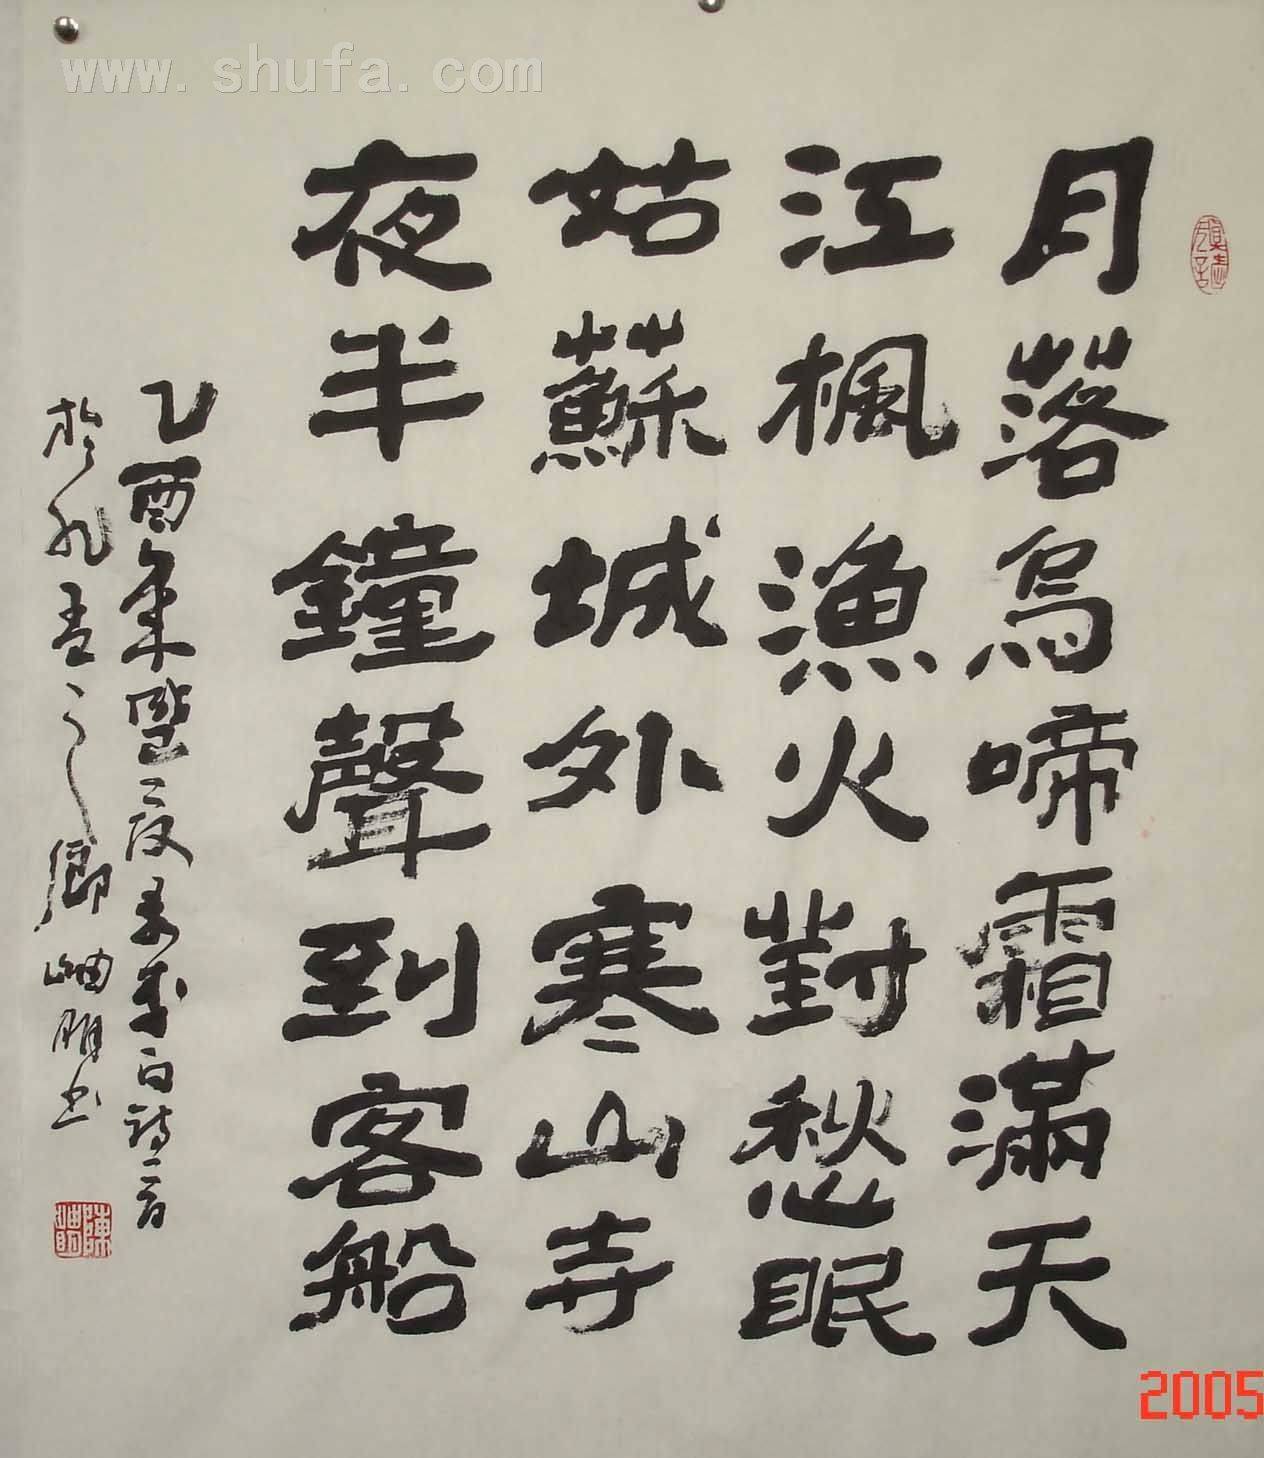 www.shufa.com
月落烏啼霜滿天
江楓漁火對愁眠
姑蘇城外寒山寺
夜半鐘聲到客船
乙酉年
詩一首
於孔孟之鄉岫朋書
2005